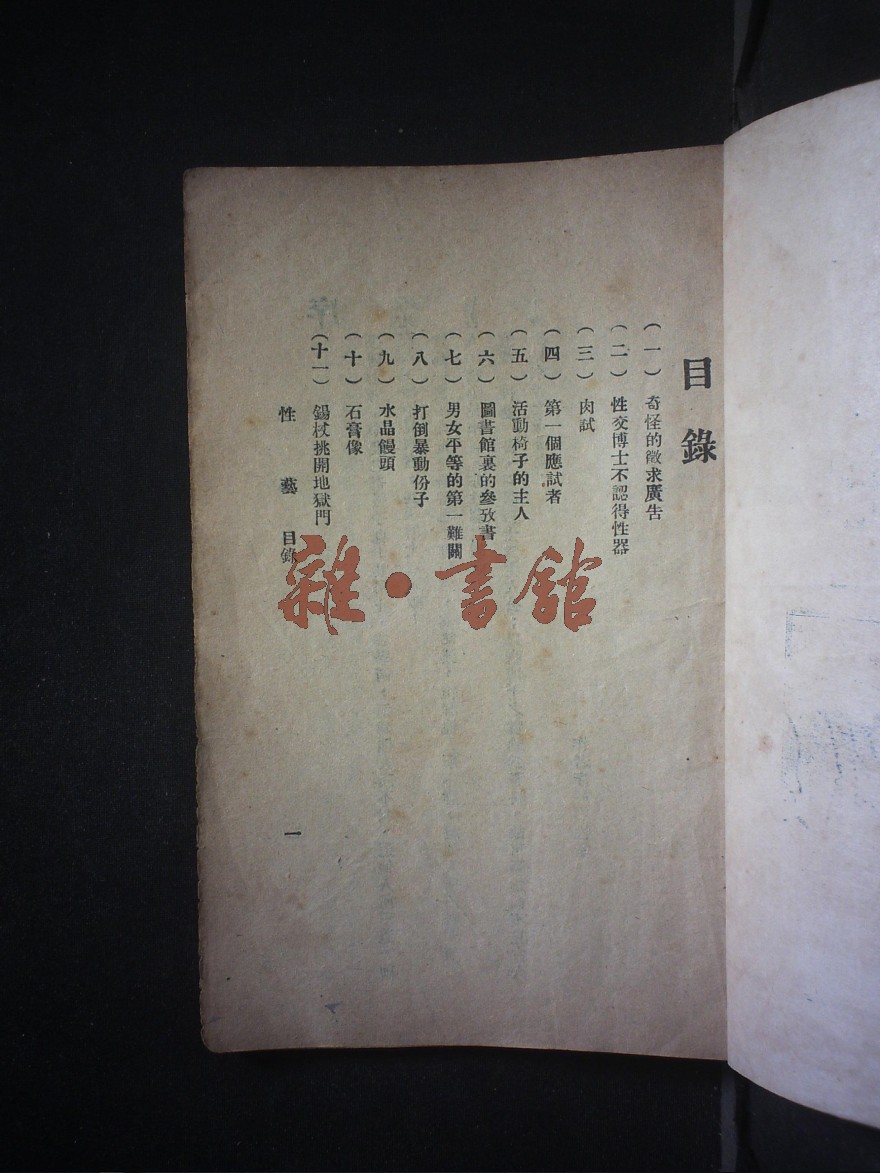 目錄
（一）　奇怪的徵求廣告
（二）　性交博士不認得性器
（三）　肉試
（四）　第一個應試者
（五）　活動椅子的主人
（六）　圖書館裏的參攷書
（七）　男女平等的第一難關
（八）　打倒暴動份子
（九）　水晶饅頭
（十）　石膏像
（十一）　錫杖挑開地獄門
性藝　目錄　一
雜·書館